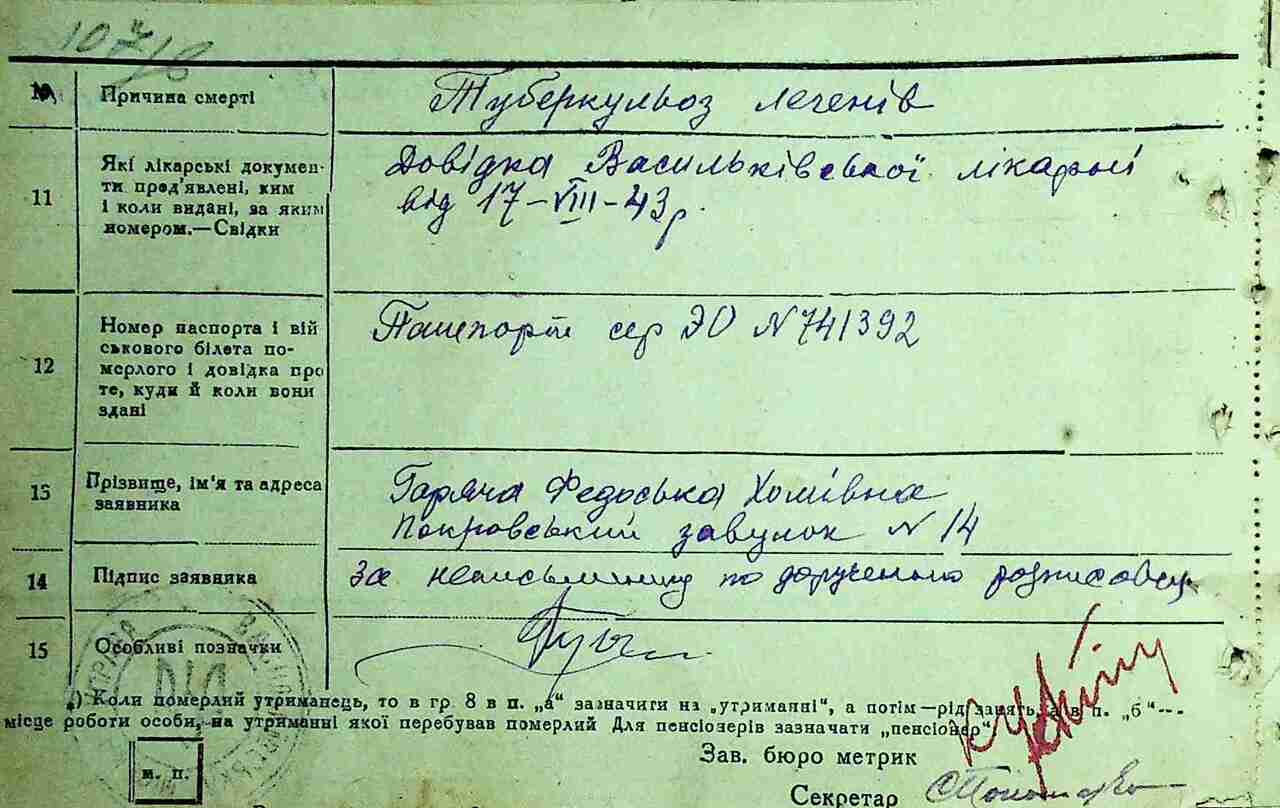 10718
Причина смерті
Туберкульоз легенів
11
Які лікарські докумен-
ти пред'явлені, ким
і коли видані, за яким
номером.—Свідки
Довідка Васильківської лікарні
від 17-VIII-43р.
12
Номер паспорта і вій
ськового білета по-
мерлого і довідка про
те, куди й коли вони
здані
Пашпорт сер ЭО N 741392
13
Прізвище, ім'я та адреса
заявника
Горяча Федоська Хомівна
Покровський завулок N 14
14
Підпис заявника
за неписьменну по дорученню розписався
15
Особливі позначки
) Коли померлий утриманець, то в гр. 8 в п. „а" зазначити на „утриманні", а потім—рід занять, а в п. „б"---
місце роботи особи, на утриманні якої перебував померлий Для пенсіонерів зазначати „пенсіонер"
Зав. бюро метрик
м. п.
Секретар